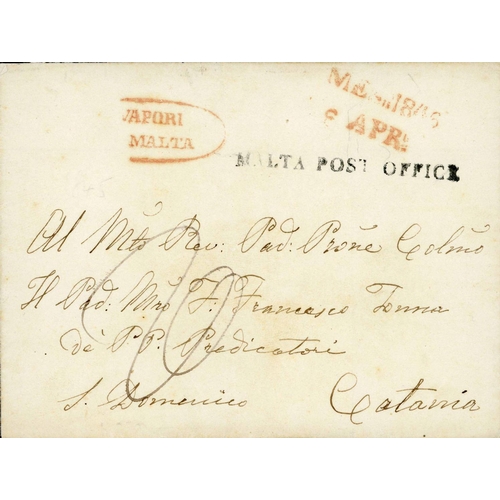 VAPORI
MALTA
MES... 1846
6 APR.
MALTA POST OFFICE
Al Mto Rev: Pad: Prōne Colmo
Il Pad: Mro F. Francesco Tonna
de' P.P. Predicatori
S. Domenico Catania